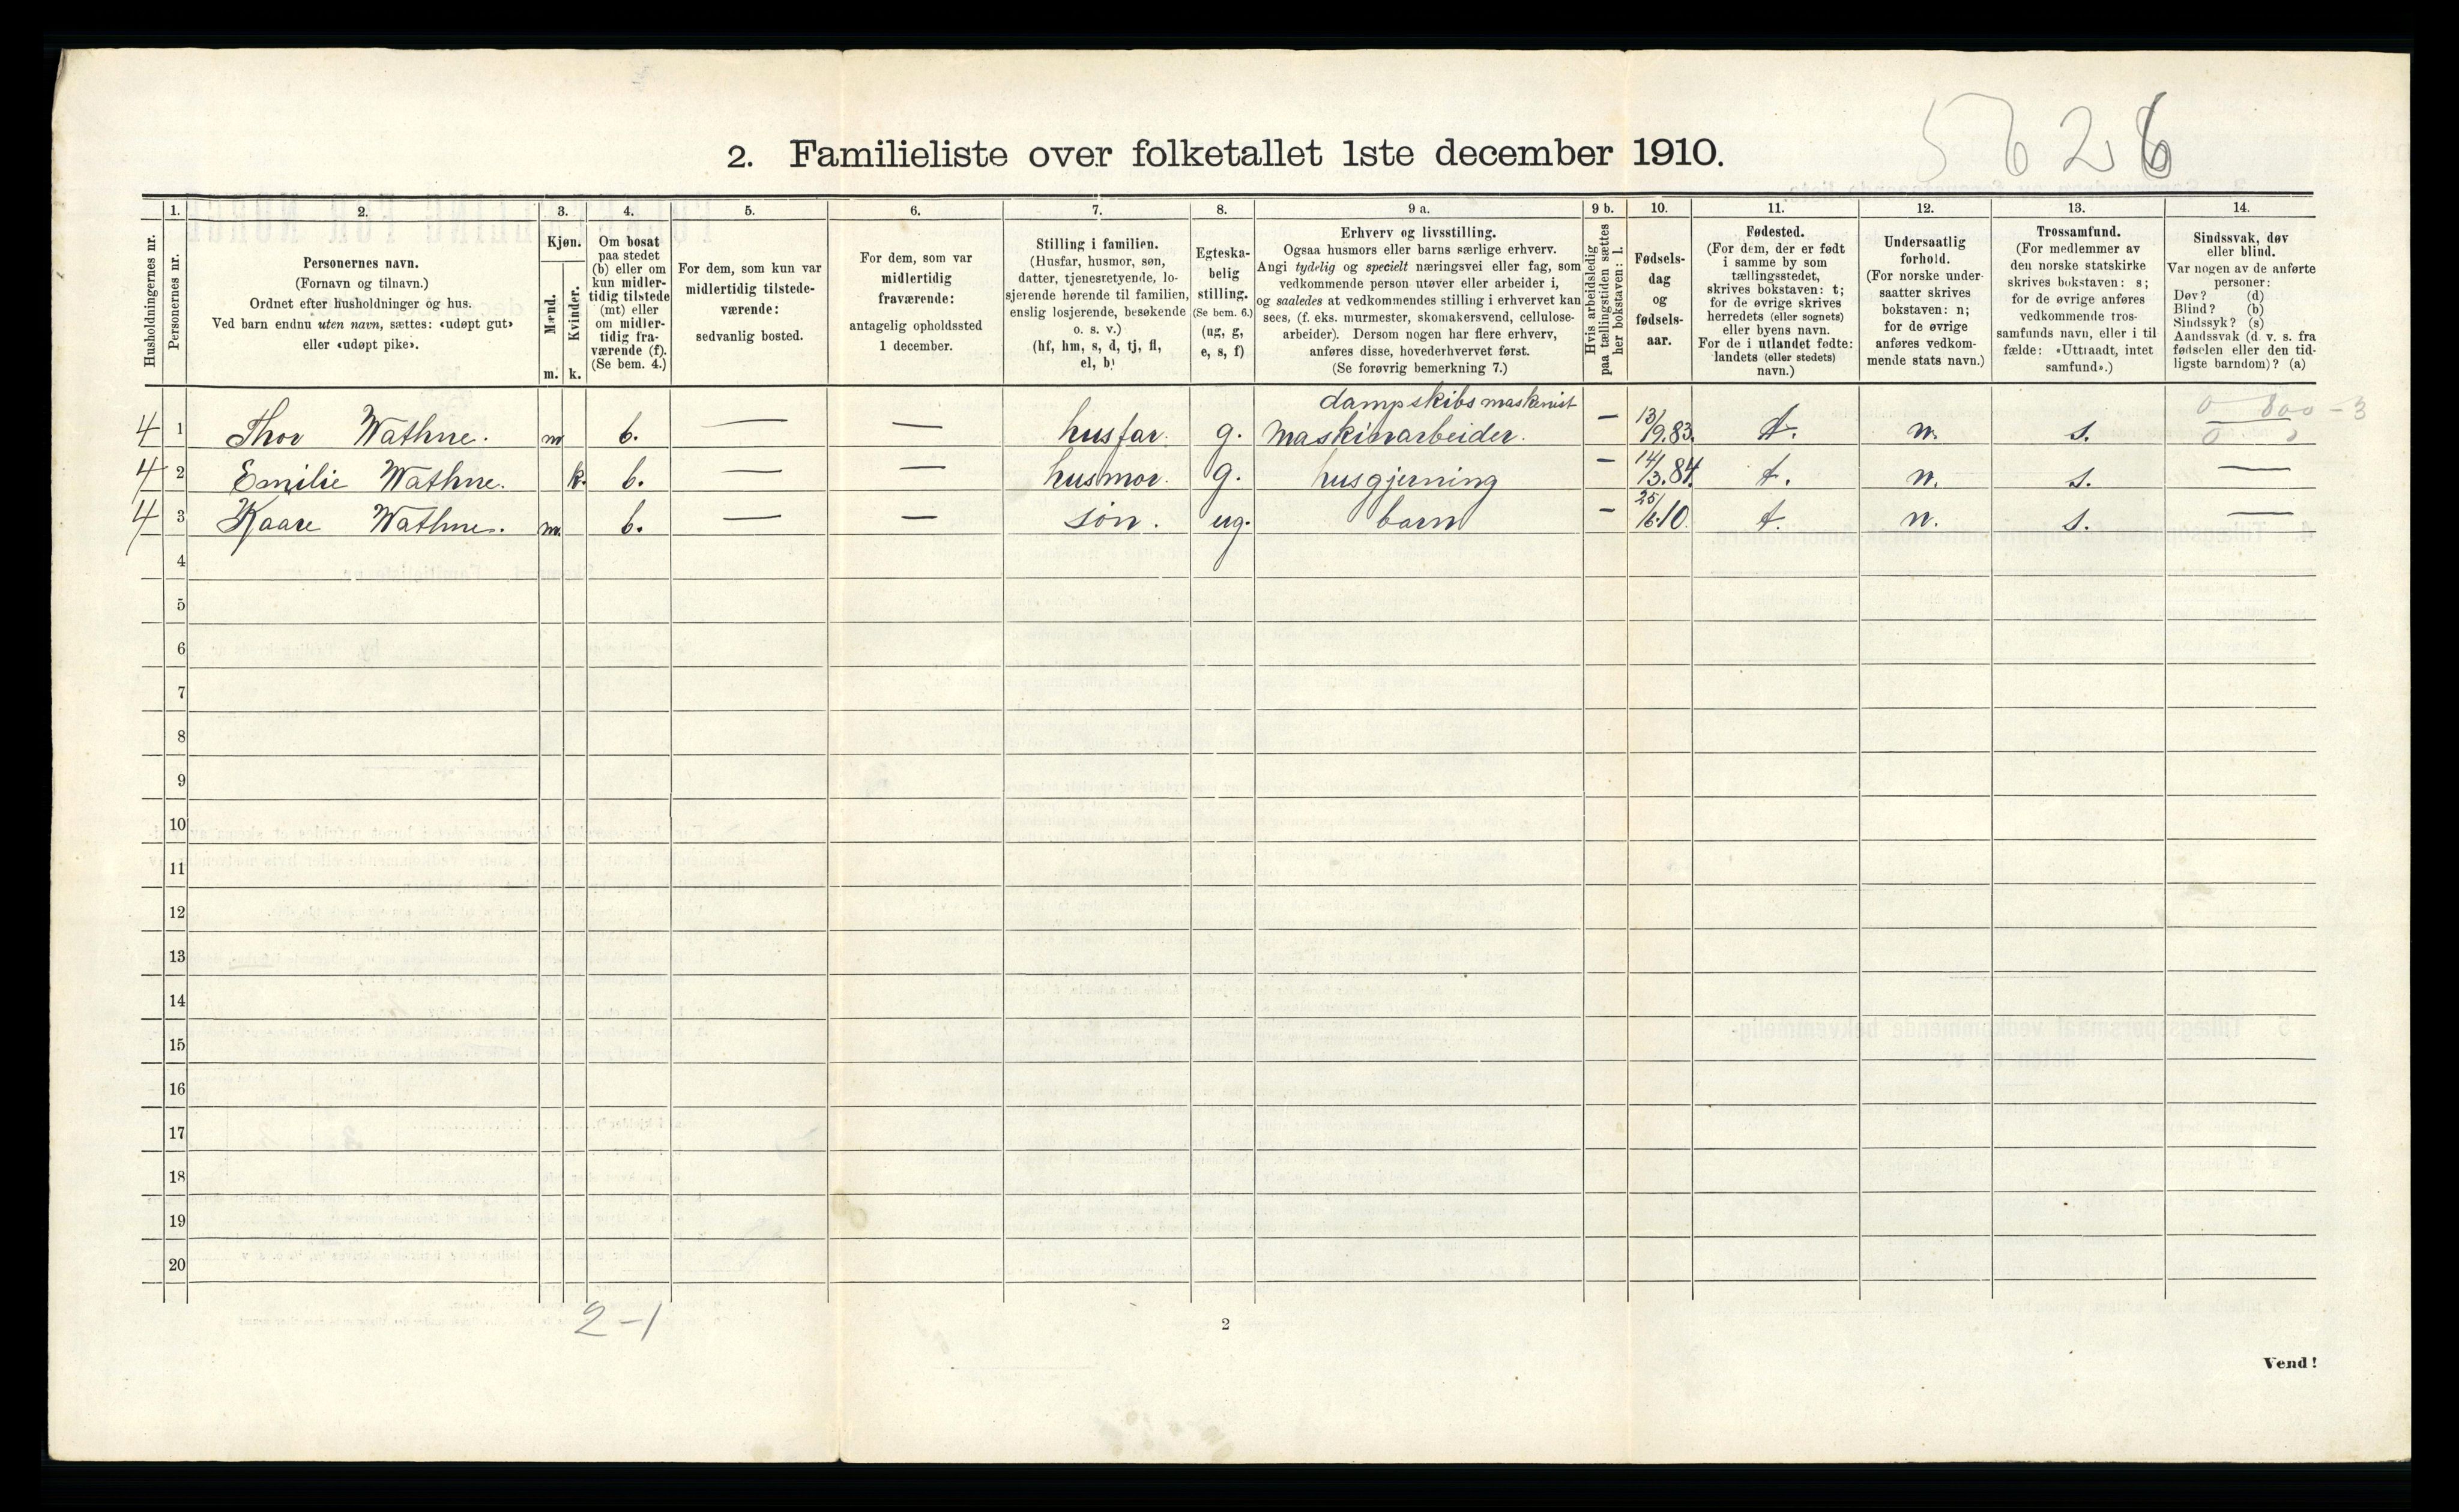 5626
2. Familieliste over folketallet 1ste december 1910.
Husholdningernes nr.
1.
Personernes nr.
2.
Personernes navn.
(Fornavn og tilnavn.)
Ordnet efter husholdninger og hus.
Ved barn endnu uten navn, sættes: «udøpt gut»
eller «udøpt pike».
3.
Kjøn.
Mænd.
Kvinder.
m. k.
4.
Om bosat
paa stedet
(b) eller om
kun midler-
tidig tilstede
(mt) eller
om midler-
tidig fra-
værende (f).
(Se bem. 4.)
5.
For dem, som kun var
midlertidig tilstede-
værende:
sedvanlig bosted.
6.
For dem, som var
midlertidig
fraværende:
antagelig opholdssted
1 december.
7.
Stilling i familien.
(Husfar, husmor, søn,
datter, tjenestetyende, lo-
sjerende hørende til familien,
enslig losjerende, besøkende
o. s. v.)
(hf, hm, s, d, tj, fl,
el, b)
8.
Egteska-
belig
stilling.
(Se bem. 6.)
(ug, g,
e, s, f)
9 a.
Erhverv og livsstilling.
Ogsaa husmors eller barns særlige erhverv.
Angi tydelig og specielt næringsvei eller fag, som
vedkommende person utøver eller arbeider i,
og saaledes at vedkommendes stilling i erhvervet kan
sees, (f. eks. murmester, skomakersvend, cellulose-
arbeider). Dersom nogen har flere erhverv,
anføres disse, hovederhvervet først.
(Se forøvrig bemerkning 7.)
9 b.
Hvis arbeidsledig
paa tællingstiden sættes
her bokstaven: l.
10.
Fødsels-
dag
og
fødsels-
aar.
11.
Fødested.
(For dem, der er født
i samme by som
tællingsstedet,
skrives bokstaven: t;
for de øvrige skrives
herredets (eller sognets)
eller byens navn.
For de i utlandet fødte:
landets (eller stedets)
navn.)
12.
Undersaatlig
forhold.
(For norske under-
saatter skrives
bokstaven: n;
for de øvrige
anføres vedkom-
mende stats navn.)
13.
Trossamfund.
(For medlemmer av
den norske statskirke
skrives bokstaven: s;
for de øvrige anføres
vedkommende tros-
samfunds navn, eller i til
fælde: «Uttraadt, intet
samfund».)
14.
Sindssvak, døv
eller blind.
Var nogen av de anførte
personer:
Døv? (d)
Blind? (b)
Sindssyk? (s)
Aandssvak (d. v. s. fra
fødselen eller den tid-
ligste barndom)? (a)
dampskibsmaskinist 0 800 - 3
4 1 Thor Wathne. m b. — — husfar. g. maskinarbeider. – 13/9.83. t. n. s.
4 2 Emilie Wathne. k. b. — — husmor. g. husgjerning – 14/3.84. t. n. s. —
4 3 Kaare Wathne. m. b. — — søn. ug. barn – 25/6.10. t. n. s. —
4
5
6
7
8
9
10
11
12
13
14
15
16
17
18
19
20
2-1
2
Vend!